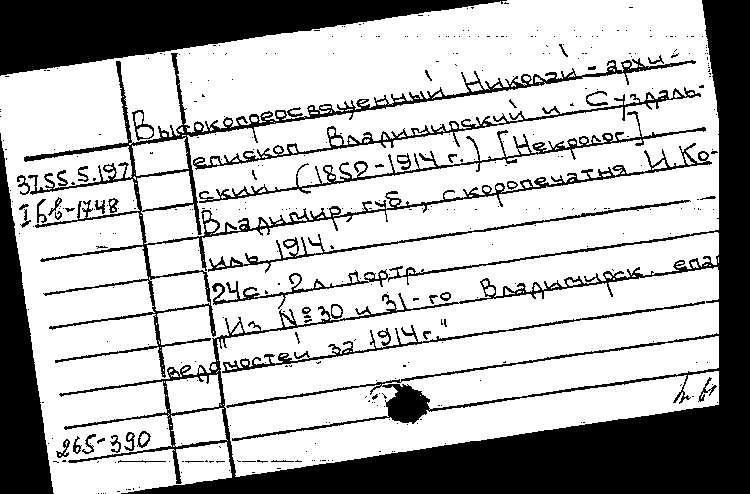 Высокопреосвященный Николай - архи-
епископ Владимирский и Суздаль-
ский. (1850-1914 г.). [Некролог].
37.55.5.197
Iбв-1748
Владимир, губ., скоропечатня И. Ко-
иль, 1914.
24с.; 2 л. портр.
"Из №30 и 31-го Владимирск. епар
ведомостей за 1914г."
265-390